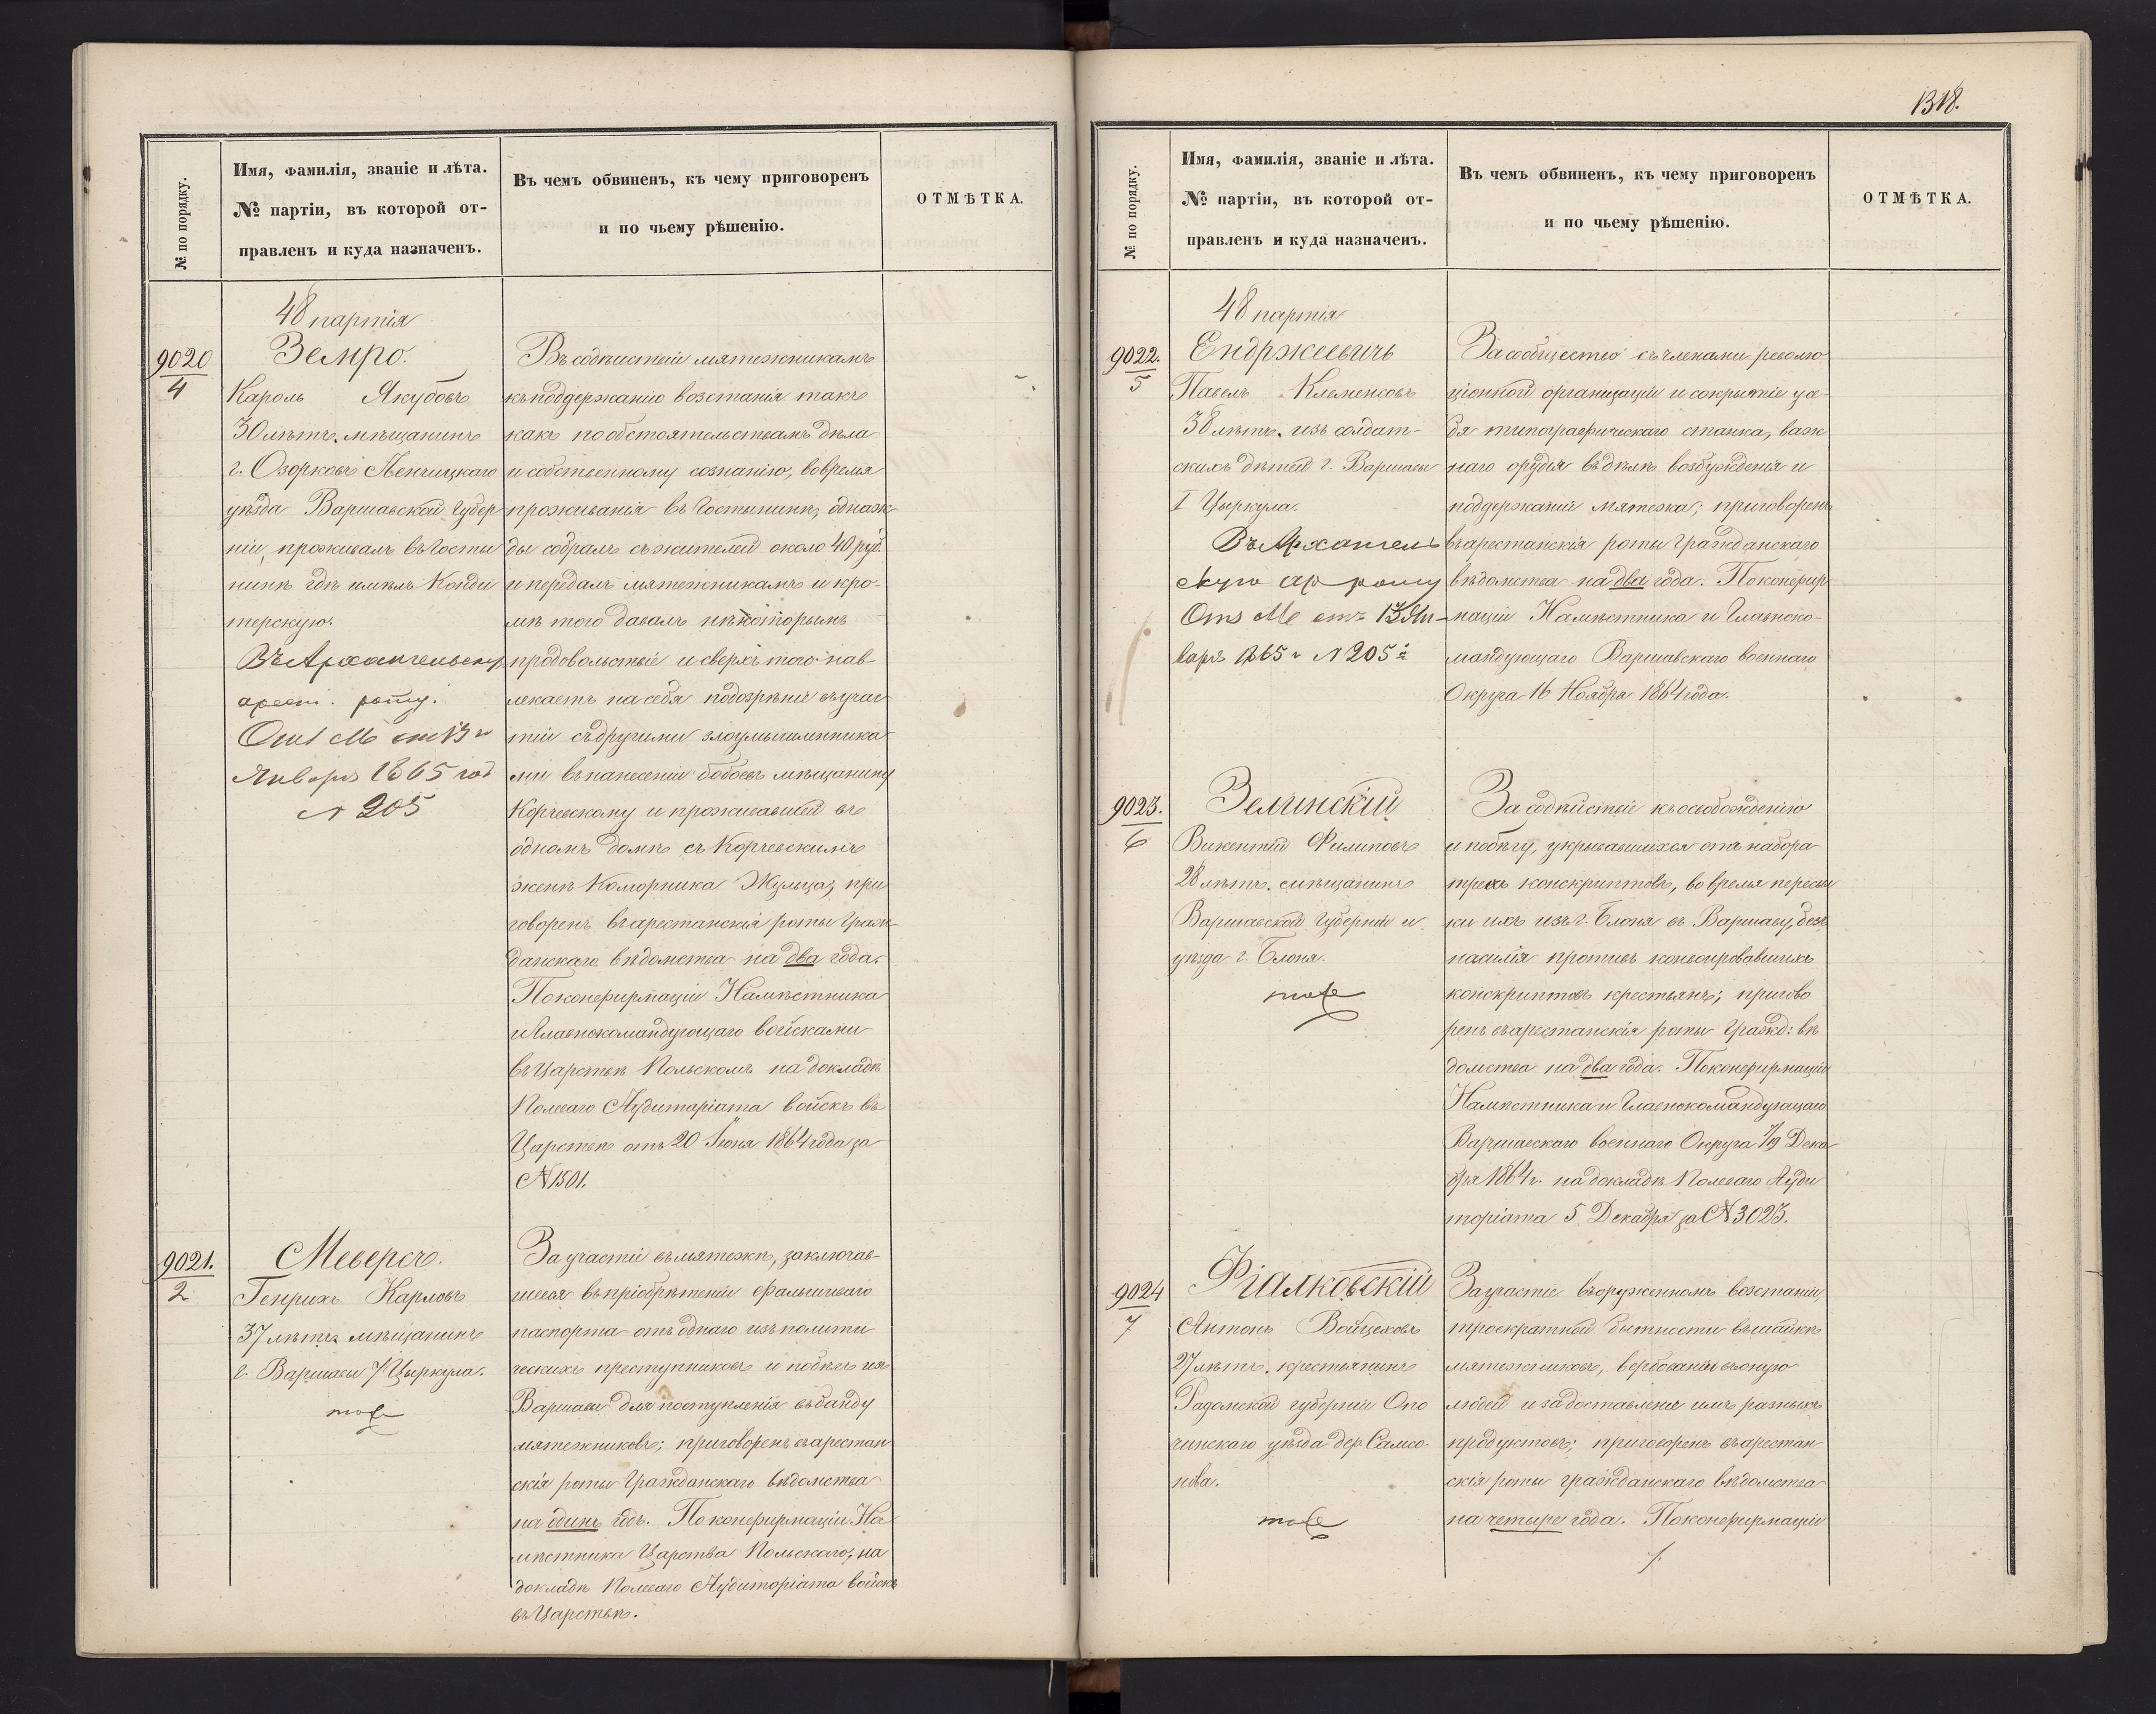 1318.
№ по порядку.
Имя, фамилія, званіе и лѣта.
№ партіи, въ которой от-
правленъ и куда назначенъ.
Въ чемъ обвиненъ, къ чему приговоренъ
и по чьему рѣшенію.
ОТМѢТКА.
48 партія
9020
4
Земро.
Кароль Якубовъ
30 лѣтъ, мѣщанинъ
г. Озорковъ Ленчицкаго
уѣзда Варшавской Губер
ніи, проживалъ въ Гости
нинѣ гдѣ имѣлъ Конди
терскую.
Въ Архангельск
арест. роту.
Отд М от 13 г
Января 1865 год
N 205
Въ содѣйствіи мятежникамъ
къ поддержанію возстанія такъ
какъ по обстоятельствамъ дѣла
и собственному сознанію, во время
проживанія въ Гостынинѣ, однаж
ды собралъ съ жителей около 40 руб.
и передалъ мятежникамъ и кро-
мѣ того давалъ нѣкоторымъ
продовольствіе и сверхъ того нав
лекаетъ на себя подозрѣніе въ учас
тіи съ другими злоумышленника
ми въ нанесеніи побоевъ мѣщанину
Корчевскому и проживавшей въ
одномъ домѣ съ Корчевскимъ
женѣ Коморника Жульца, при
говоренъ въ арестанскія роты Граж-
данскаго вѣдомства на два года.
По конфирмаціи Намѣстника
и Главнокомандующаго войсками
въ Царствѣ Польскомъ на докладѣ
Полеваго Аудиторіата войскъ въ
Царствѣ отъ 20 Іюня 1864 года за
N 1501.
9021.
2
Меверсъ.
Генрихъ Карловъ
37 лѣтъ, мѣщанинъ
г. Варшавы 7 Цыркула.
тоже
За участіе въ мятежѣ, заключав-
шееся въ пріобрѣтеніи фальшиваго
паспорта отъ однаго изъ полити
ческихъ преступниковъ и побѣгъ изъ
Варшавы для поступленія въ банду
мятежниковъ; приговоренъ въ арестан
скія роты Гражданскаго вѣдомства
на одинъ годъ. По конфирмаціи На
мѣстника Царства Польскаго, на
докладѣ Полеваго Аудиторіата войскъ
въ Царствѣ.
№ по порядку.
Имя, фамилія, званіе и лѣта.
№ партіи, въ которой от-
правленъ и куда назначенъ.
Въ чемъ обвиненъ, къ чему приговоренъ
и по чьему рѣшенію.
ОТМѢТКА.
48 партія
9022.
5
Ендржеевичь
Павелъ Клеменсовъ
38 лѣтъ, изъ солдат-
скихъ дѣтей г. Варшавы
I Цыркула.
Въ Архангель
скую ар роту
Отд М от 13 Ян-
варя 1865 г N 205
За сообщество съ членами револю
ціонной организаціи и сокрытіе у се-
бя типографическаго станка, важ
наго орудія въ дѣлѣ возбужденія и
поддержаніи мятежа; приговоренъ
въ арестанскія роты Гражданскаго
вѣдомства на два года. По конфир
маціи Намѣстника и Главноко-
мандующаго Варшавскаго военнаго
Округа 16 Ноября 1864 года.
9023.
6
Зелинскій
Викентій Филиповъ
28 лѣтъ, мѣщанинъ
Варшавской Губерніи и
уѣзда г. Блоня.
тоже
За содѣйствіе къ освобожденію
и побѣгу, укрывавшихся отъ набора
трехъ конскриптовъ, во время пересыл
ки ихъ изъ г. Блоня въ Варшаву, безъ
насилія противъ конвоировавшихъ
конскриптовъ крестьянъ; пригово
ренъ въ арестанскія роты Гражд: вѣ
домства на два года. По конфирмаціи
Намѣстника и Главнокомандующаго
Варшавскаго военнаго Округа 7/19 Дека-
бря 1864 г. на докладѣ Полеваго Ауди
торіата 5 Декабря за N 3023.
9024
7
Фіалковскій
Антонъ Войцеховъ
27 лѣтъ, крестьянинъ
Радомской губерніи Опо
чинскаго уѣзда дер. Самсо-
нова.
тоже
За участіе въ оруженномъ возстаніи,
троекратной бытности въ шайкѣ
мятежниковъ, вербованіи въ оную
людей и за доставленіе имъ разныхъ
продуктовъ; приговоренъ въ арестан
скія роты гражданскаго вѣдомства
на четыре года. По конфирмаціи